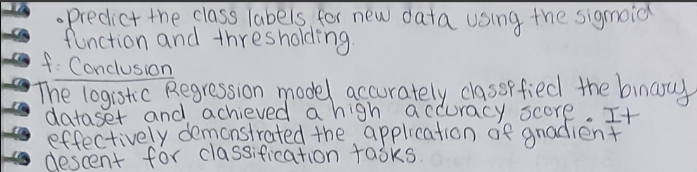 • Predict the class labels for new data using the sigmoid
function and thresholding.
f: Conclusion
The logistic Regression model accurately classified the binary
dataset and achieved a high accuracy score. It
effectively demonstrated the application of gradient
descent for classification tasks.